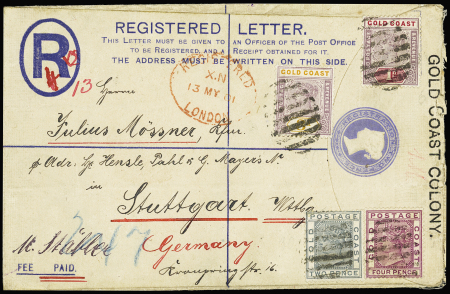 REGISTERED LETTER.
THIS LETTER MUST BE GIVEN TO AN OFFICER OF THE POST OFFICE
TO BE REGISTERED, AND A RECEIPT OBTAINED FOR IT.
THE ADDRESS MUST BE WRITTEN ON THIS SIDE.
R
13
REGISTERED
X.N
13 MY 01
LONDON
GOLD COAST
GOLD COAST
GOLD COAST COLONY.
Herrn
Julius Mössner,
Adr. Hensle, Pahl & G. Mayers
in
Stuttgart
Germany
Kronprinzstr. 16.
FEE PAID.
POSTAGE
GOLD COAST
TWO PENCE
POSTAGE
GOLD COAST
FOUR PENCE